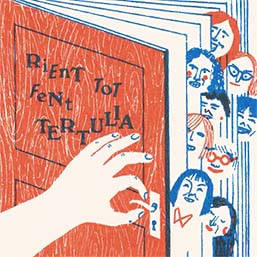 RIENT TOT
FENT
TERTULIA